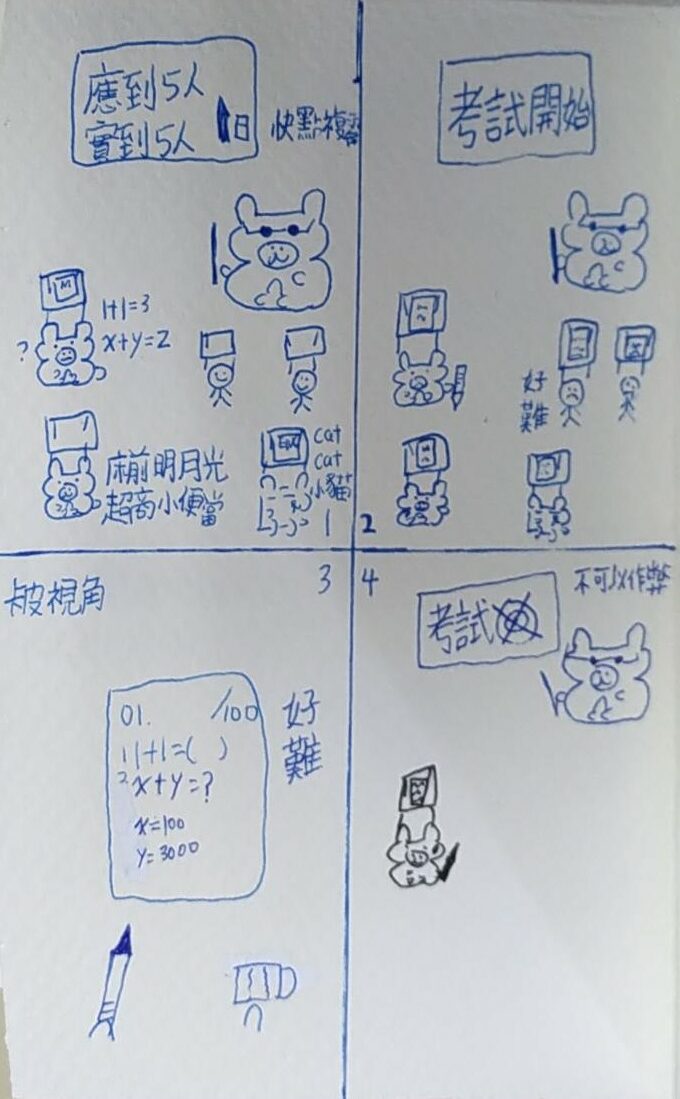 應到5人
實到5人
日
快點複習
1+1=3
x+y=2
?
床前明月光
超商小便當
cat
cat
小貓
1
考試開始
好
難
2
皮視角
3
01. /100
1 1+1=( )
2 x+y=?
x=100
y=3000
好
難
4
考試
不可以作弊